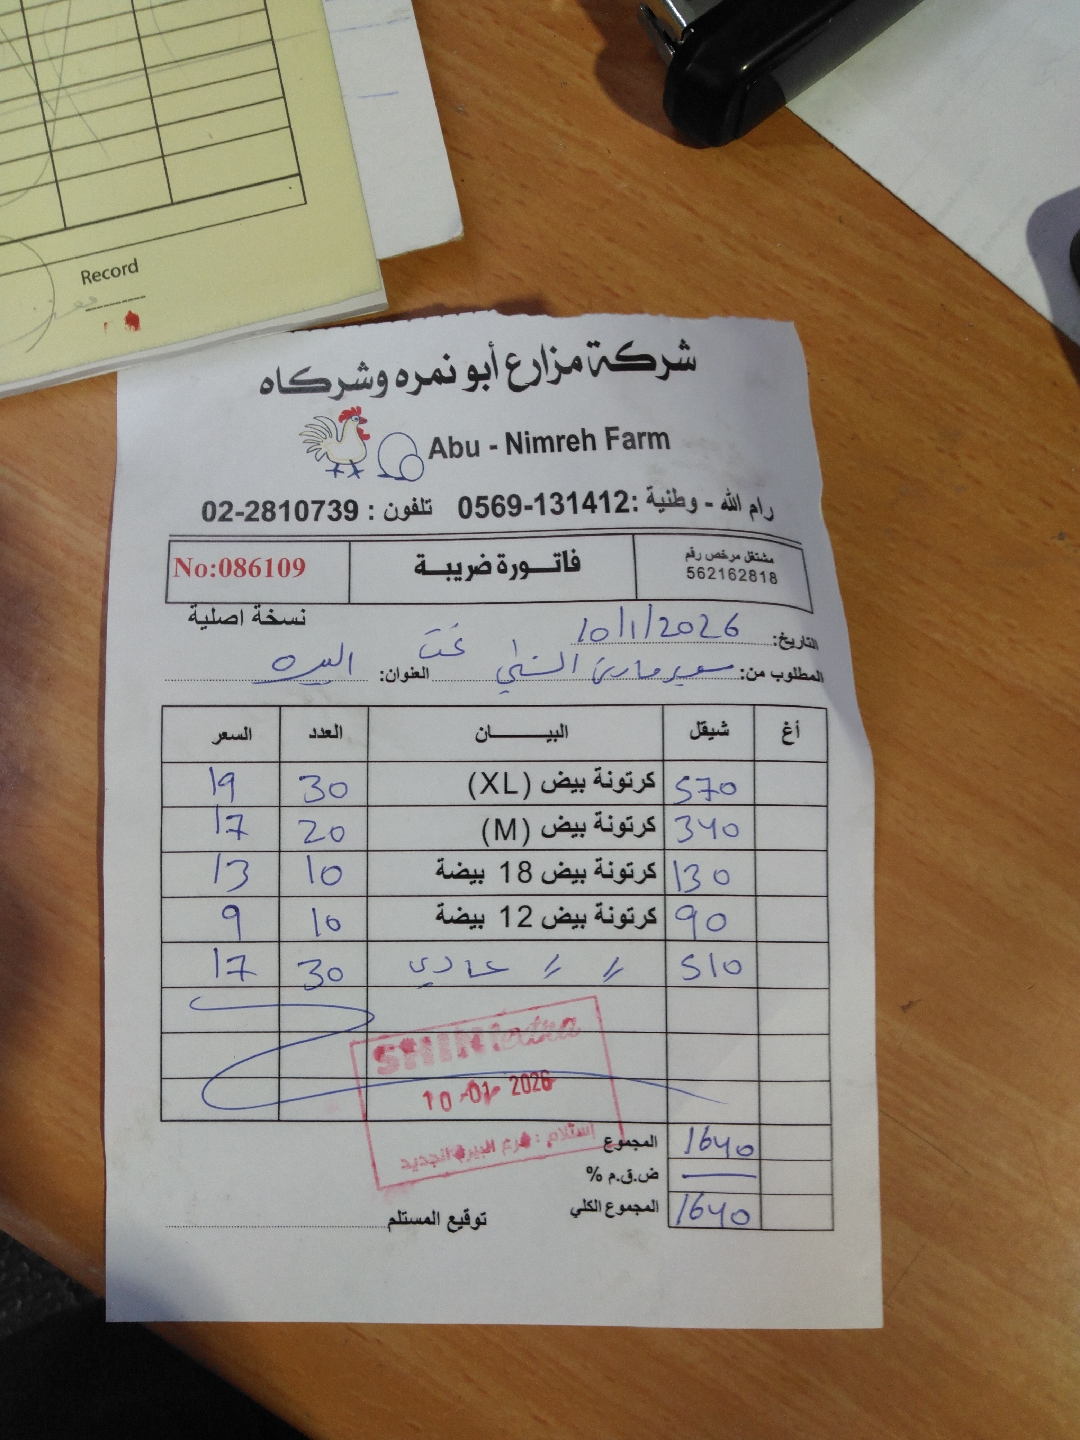 Record
شركة مزارع أبو نمره وشركاه
Abu - Nimreh Farm
رام الله - وطنية :0569-131412 تلفون : 02-2810739
مشتغل مرخص رقم
562162818
فاتورة ضريبة
No:086109
نسخة اصلية
التاريخ: 10/1/2026
المطلوب من: سوبر ماركت الشني العنوان: البيره
أغ شيقل البيان العدد السعر
570 كرتونة بيض (XL) 30 19
340 كرتونة بيض (M) 20 17
130 كرتونة بيض 18 بيضة 10 13
90 كرتونة بيض 12 بيضة 10 9
510 〃 〃 عادي 30 17
SHINI extra
10-01-2026
إستلام : فرع البيرة الجديد
المجموع 1640
ض.ق.م %
المجموع الكلي 1640
توقيع المستلم